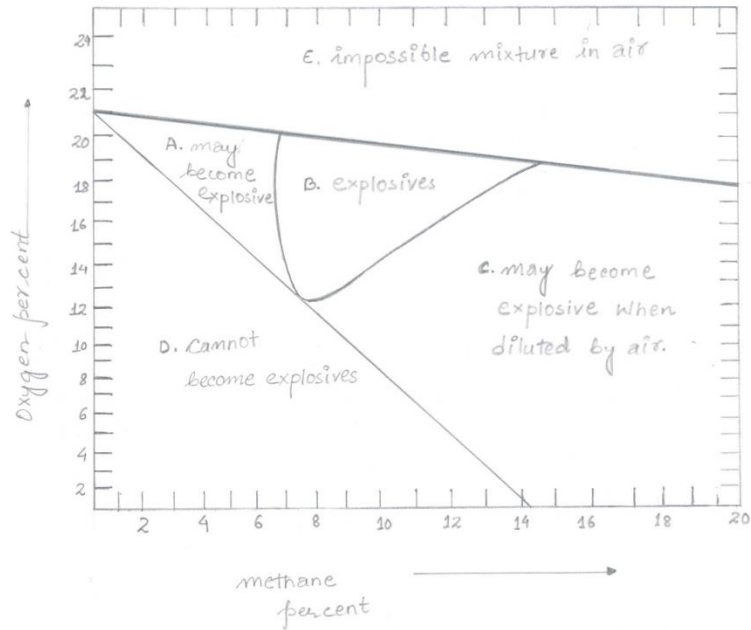 24
22
20
18
16
14
12
10
8
6
4
2
E. impossible mixture in air
A. may
become
explosive
B. explosives
C. may become
explosive when
diluted by air.
D. cannot
become explosives
Oxygen percent
2 4 6 8 10 12 14 16 18 20
methane
percent